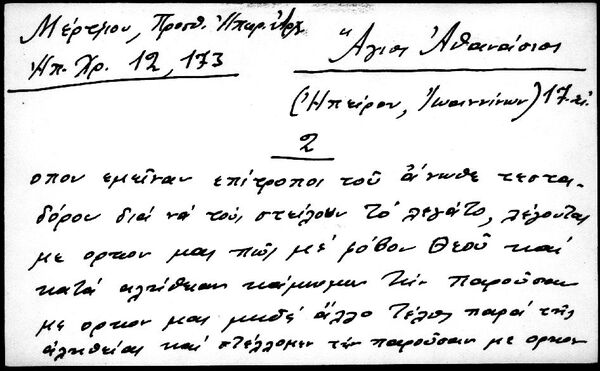 Μέρτζιου, Προσθ. Ηπειρ. Αρχ
Ηπ. Χρ. 12, 173
Ἅγιος Ἀθανάσιος
(Ἠπείρου, Ἰωαννίνων) 17
2
οπου εμεῖναν επίτροποι τοῦ ἄνωθε τεστα-
δόρου διά νά τούς στείλουν τό λεγάτο, λέγοντας
με ορκον μας πῶς μέ φόβον Θεοῦ καί
κατά αλήθειαν κάμνωμεν τήν παροῦσαν
με ορκον μας μηδέ ἄλλο τέλος παρά τῆς
αληθείας καί στέλλομεν τήν παροῦσαν με ορκον